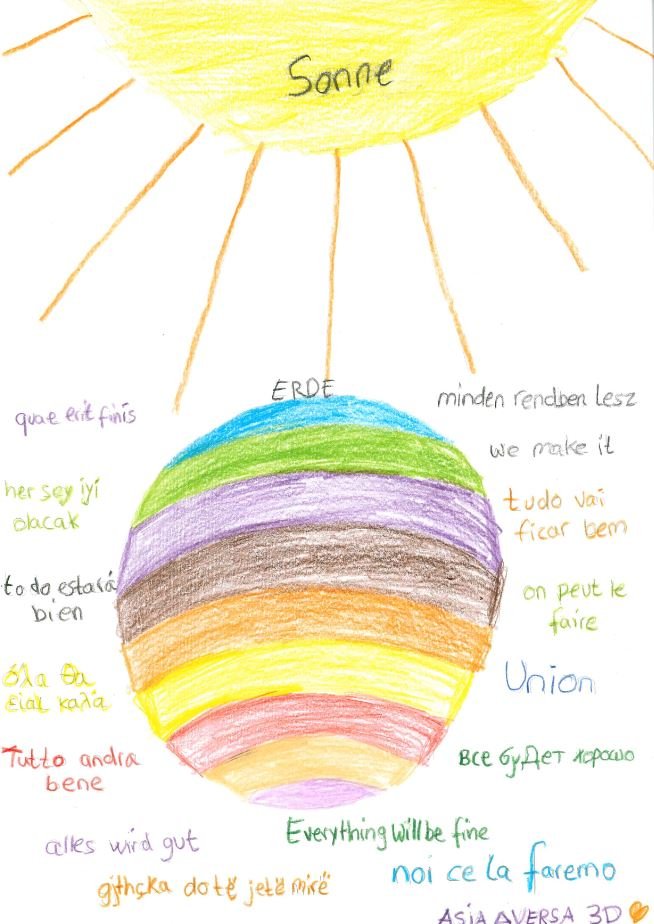 Sonne
ERDE
quae erit finis
minden rendben lesz
we make it
her sey iyi
olacak
tudo vai
ficar bem
todo estará
bien
on peut le
faire
όλα θα
είαι καλά
Union
Tutto andra
bene
все будет хорошо
alles wird gut
Everything will be fine
noi ce la faremo
gjthçka do të jetë mirë
ASIA AVERSA 3D